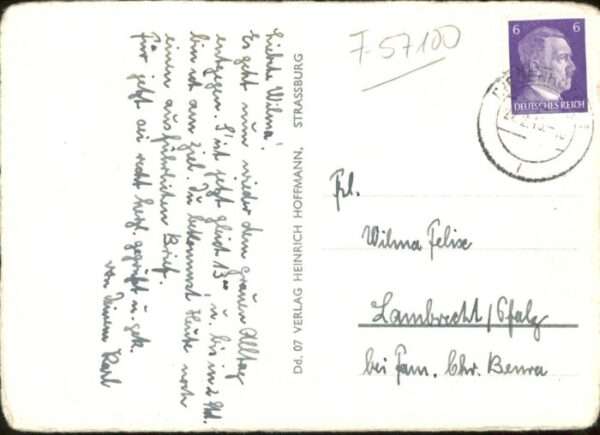 Liebste Wilma!
Es geht nun wieder dem grauen Alltag
entgegen. S'ist jetzt gleich 13°° u. bis in 2 Std.
bin ich am Ziel. Du bekommst Heute noch
einen ausführlichen Brief.
Für jetzt sei recht herzl. gegrüßt u. gek.
von Deinem Karl
Dd. 07 VERLAG HEINRICH HOFFMANN, STRASSBURG
F-57100
6 6
DEUTSCHES REICH
Frl.
Wilma Felix
Lambrecht/Pfalz
bei Fam. Chr. Benra